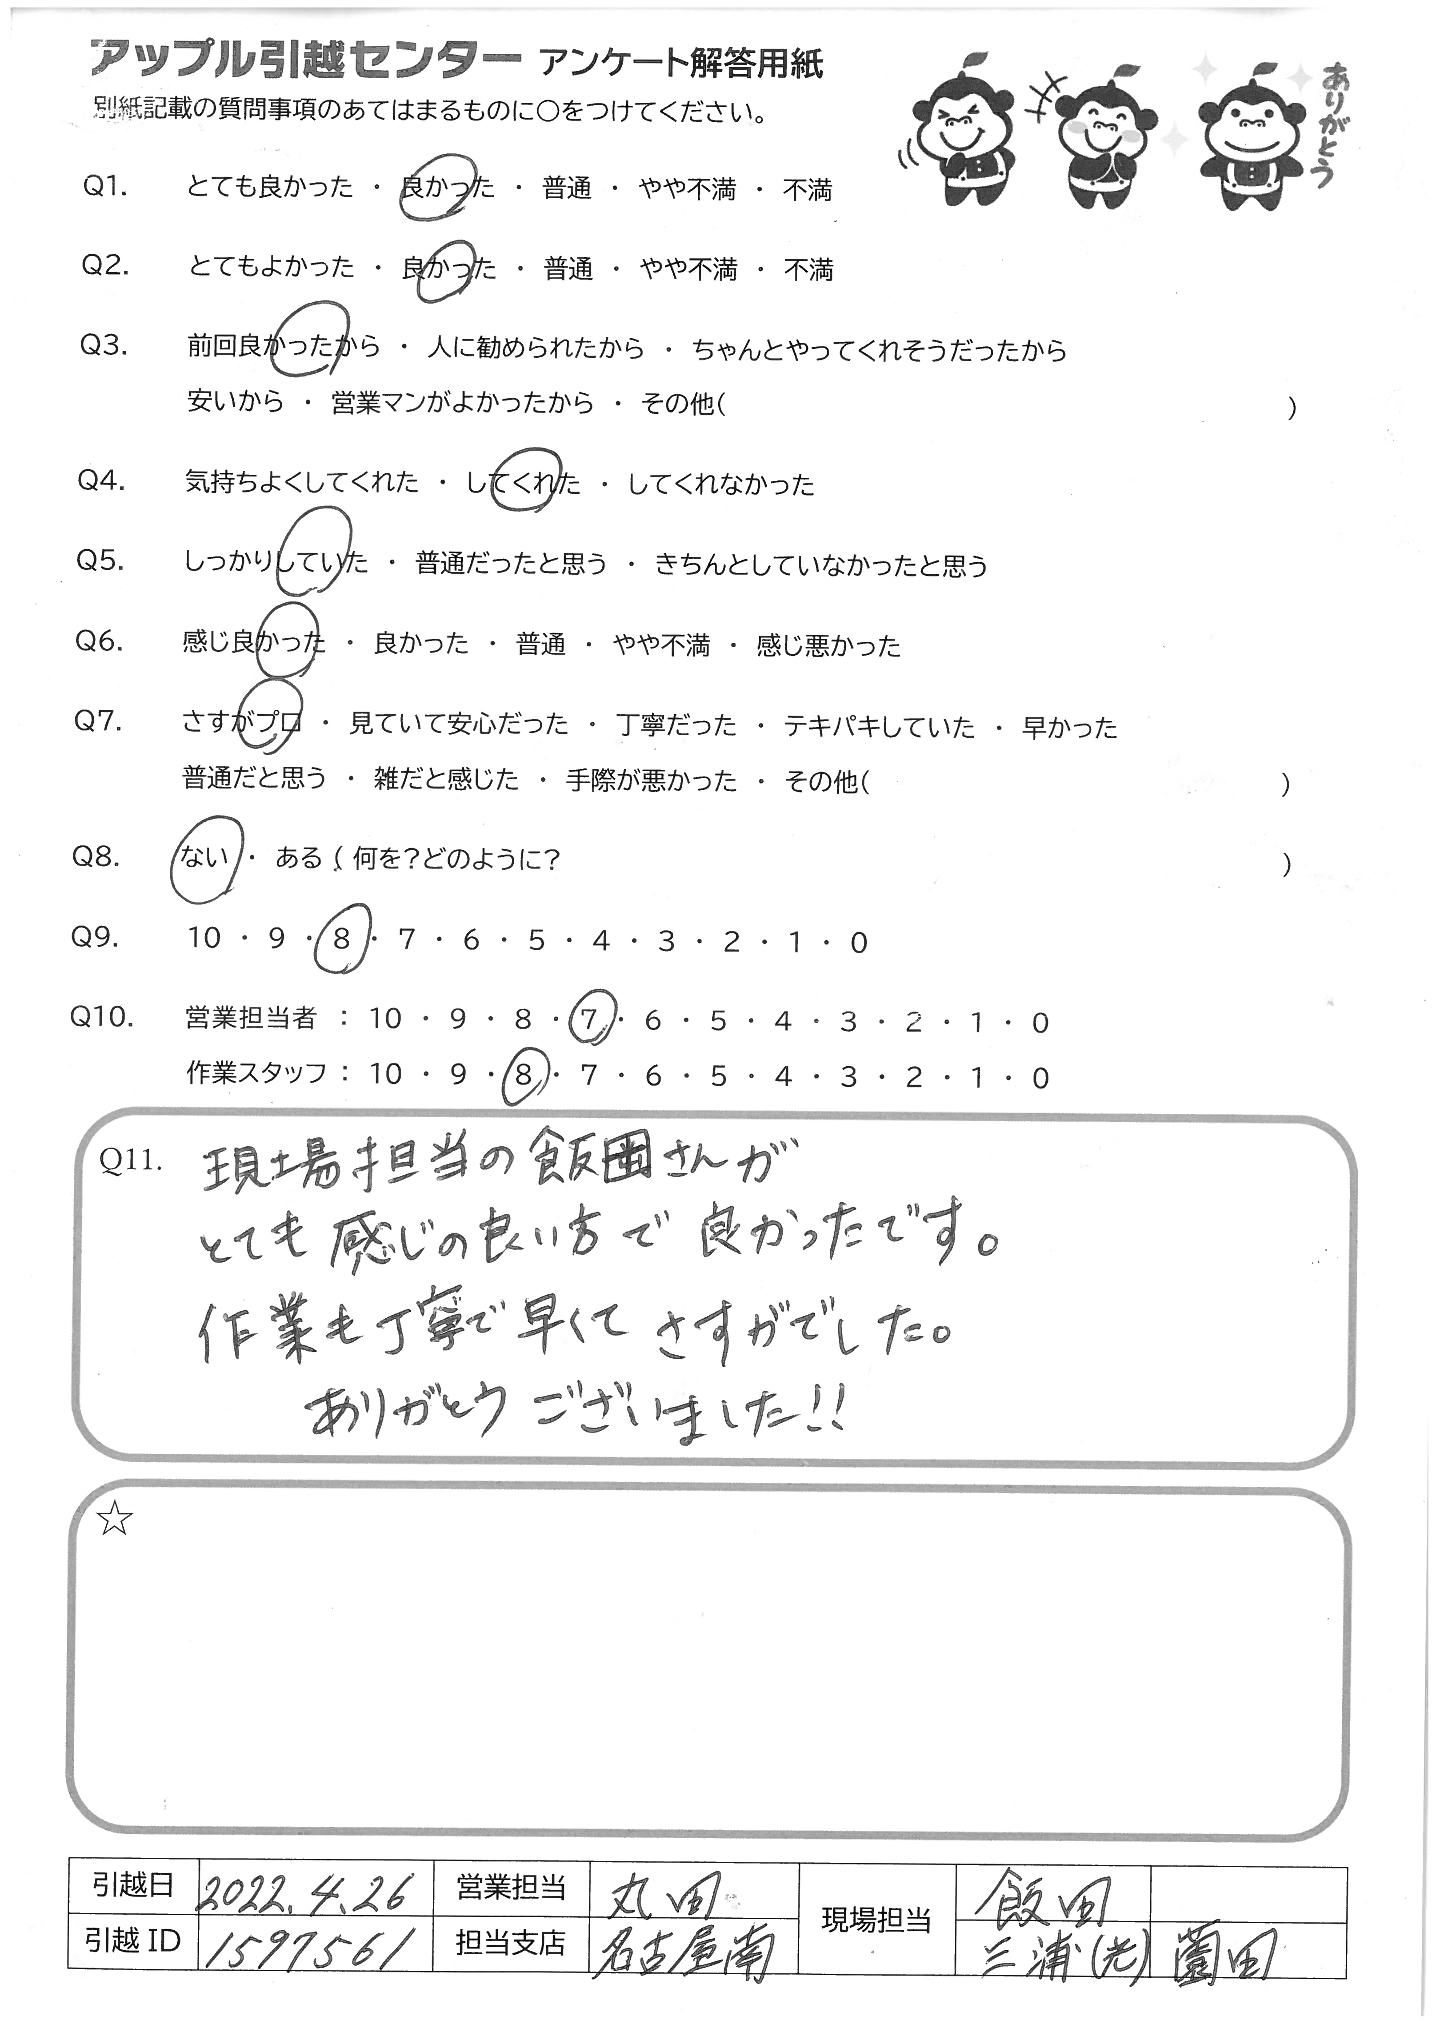 アップル引越センター アンケート解答用紙
別紙記載の質問事項のあてはまるものに〇をつけてください。
ありがとう
Q1. とても良かった ・ 良かった ・ 普通 ・ やや不満 ・ 不満
Q2. とてもよかった ・ 良かった ・ 普通 ・ やや不満 ・ 不満
Q3. 前回良かったから ・ 人に勧められたから ・ ちゃんとやってくれそうだったから
安いから ・ 営業マンがよかったから ・ その他( )
Q4. 気持ちよくしてくれた ・ してくれた ・ してくれなかった
Q5. しっかりしていた ・ 普通だったと思う ・ きちんとしていなかったと思う
Q6. 感じ良かった ・ 良かった ・ 普通 ・ やや不満 ・ 感じ悪かった
Q7. さすがプロ ・ 見ていて安心だった ・ 丁寧だった ・ テキパキしていた ・ 早かった
普通だと思う ・ 雑だと感じた ・ 手際が悪かった ・ その他( )
Q8. ない ・ ある ( 何を？どのように？ )
Q9. 10 ・ 9 ・ 8 ・ 7 ・ 6 ・ 5 ・ 4 ・ 3 ・ 2 ・ 1 ・ 0
Q10. 営業担当者 ： 10 ・ 9 ・ 8 ・ 7 ・ 6 ・ 5 ・ 4 ・ 3 ・ 2 ・ 1 ・ 0
作業スタッフ ： 10 ・ 9 ・ 8 ・ 7 ・ 6 ・ 5 ・ 4 ・ 3 ・ 2 ・ 1 ・ 0
Q11. 現場担当の飯田さんが
とても感じの良い方で良かったです。
作業も丁寧で早くてさすがでした。
ありがとうございました!!
☆
引越日 2022.4.26 営業担当 丸田 現場担当 飯田
引越ID 1597561 担当支店 名古屋南 三浦(光) 薗田